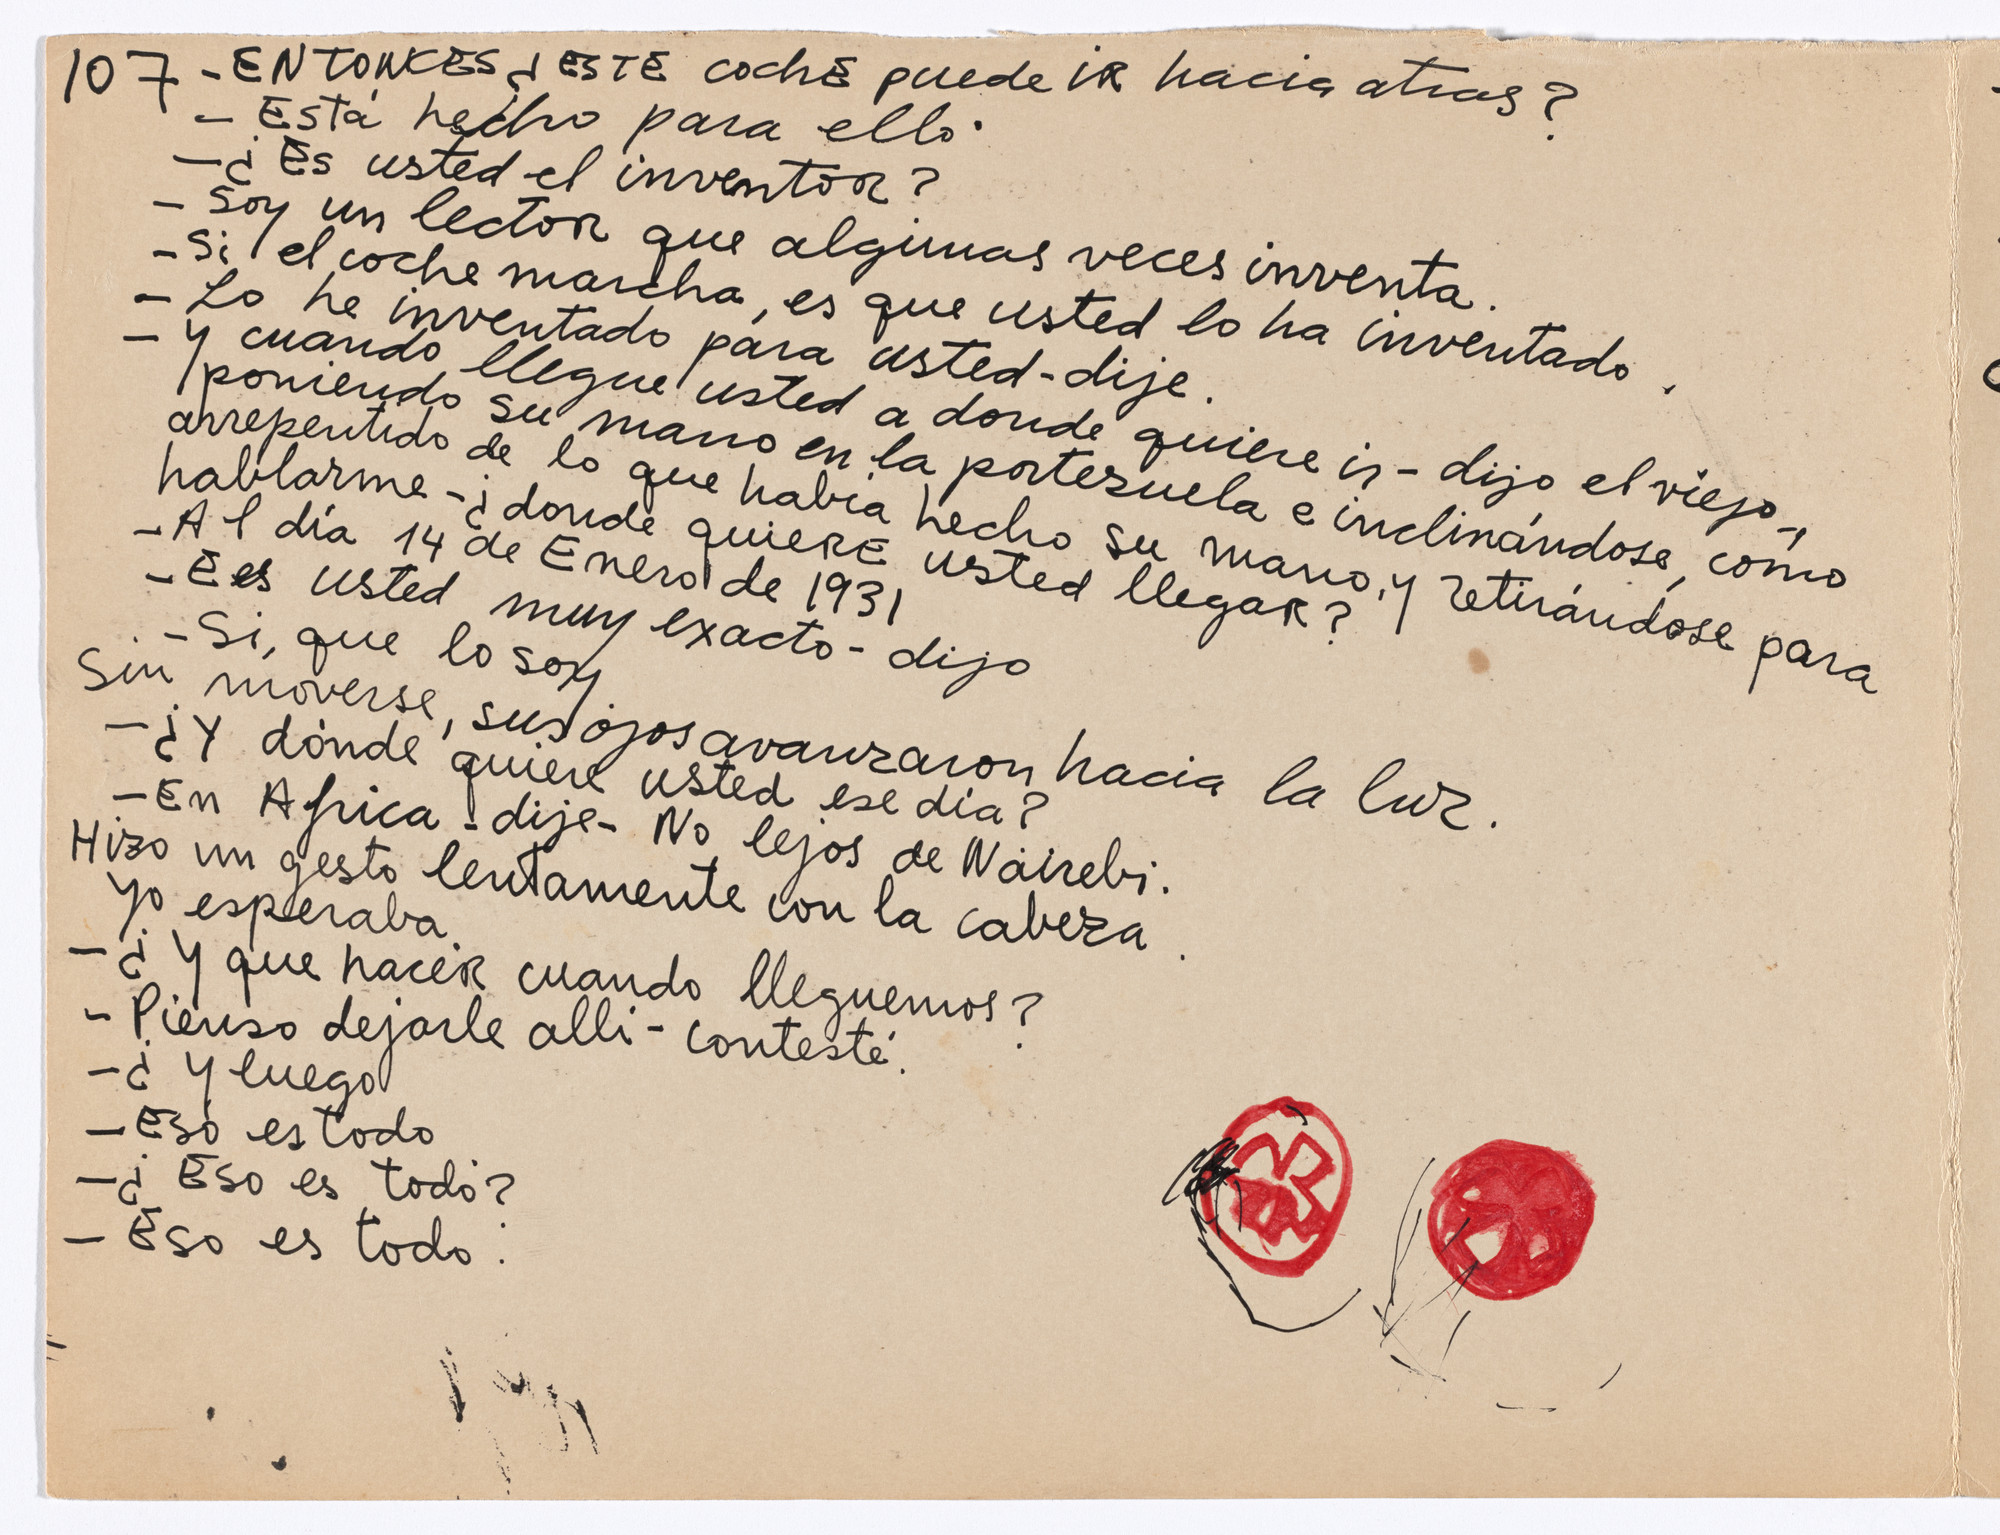 107 - ENTONCES ¿ESTE cochE puede iR hacia atras?
- Está hecho para ello.
- ¿Es usted el inventoR?
- Soy un lectoR que algunas veces inventa.
- Si el coche marcha, es que usted lo ha inventado.
- Lo he inventado para usted - dije.
- Y cuando llegue usted a donde quiere ir - dijo el viejo -,
poniendo su mano en la portezuela e inclinándose, como
arrepentido de lo que había hecho su mano, y retirándose para
hablarme - ¿donde quieRE usted llegaR?
- Al día 14 de Enero de 1931
- Ees usted muy exacto - dijo
- Si, que lo soy
Sin moverse, sus ojos avanzaron hacia la luz.
- ¿Y dónde quiere usted ese día?
- En Africa - dije - No lejos de Nairebi.
Hizo un gesto lentamente con la cabeza.
Yo esperaba.
- ¿Y que haceR cuando lleguemos?
- Pienso dejarle alli - contesté.
- ¿Y luego
- Eso es todo
- ¿Eso es todo?
- Eso es todo.